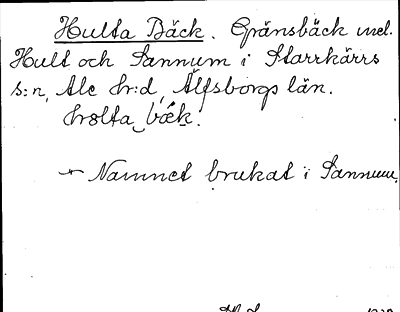 Hulta Bäck. Gränsbäck mel.
Hult och Sannum i Starrkärrs
s:n, Ale hr:d, Älfsborgs län.
hɷlta bæ̀k.
Namnet brukat i Sannum.